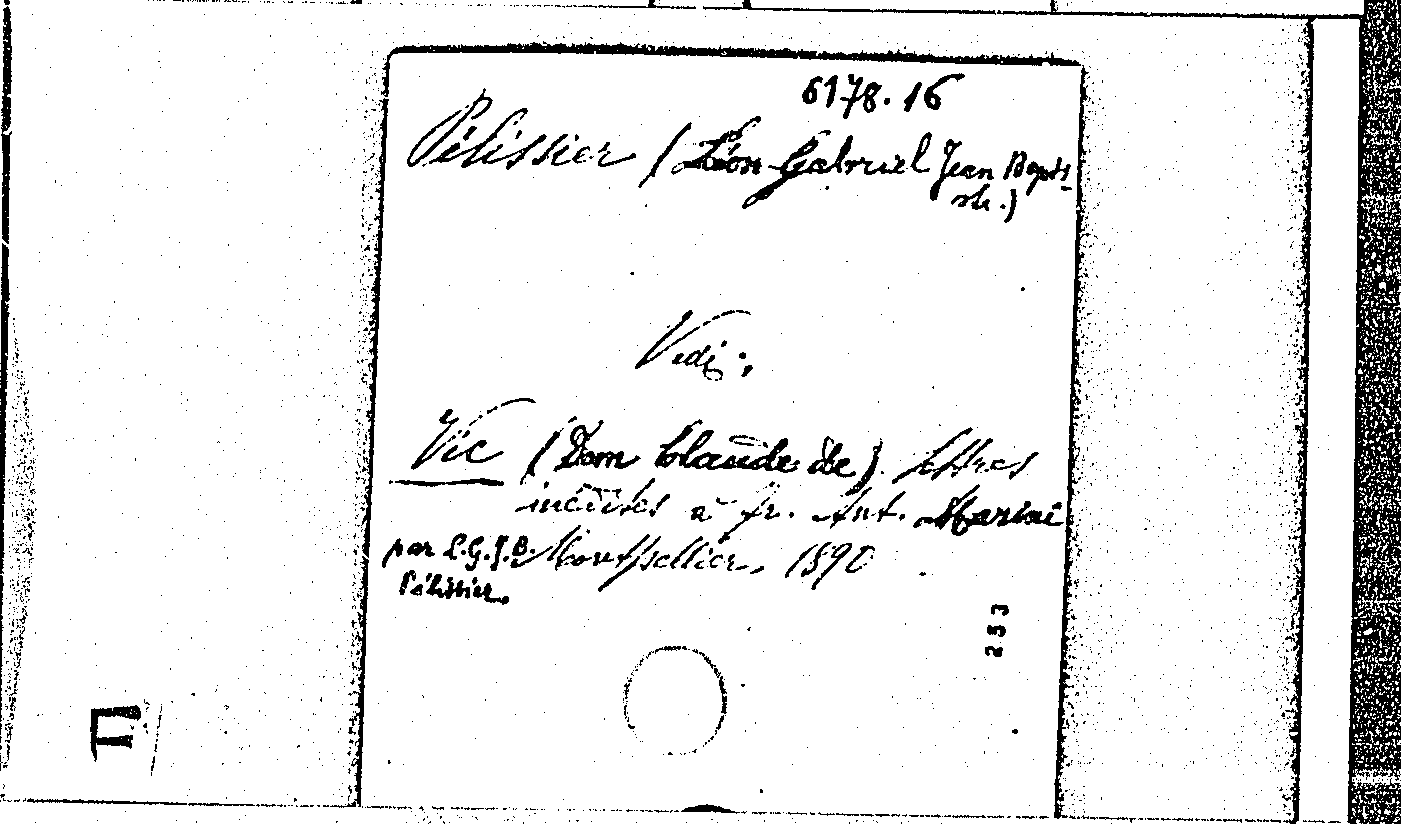 6178.16
Pélissier (Léon-Gabriel Jean Baptis-
ste.)
Vedi:
Vic (Dom Claude de). Lettres
inédites à fr. Ant. Marsai
par L.G.J.B. Montpellier, 1890
Pélissier.
253